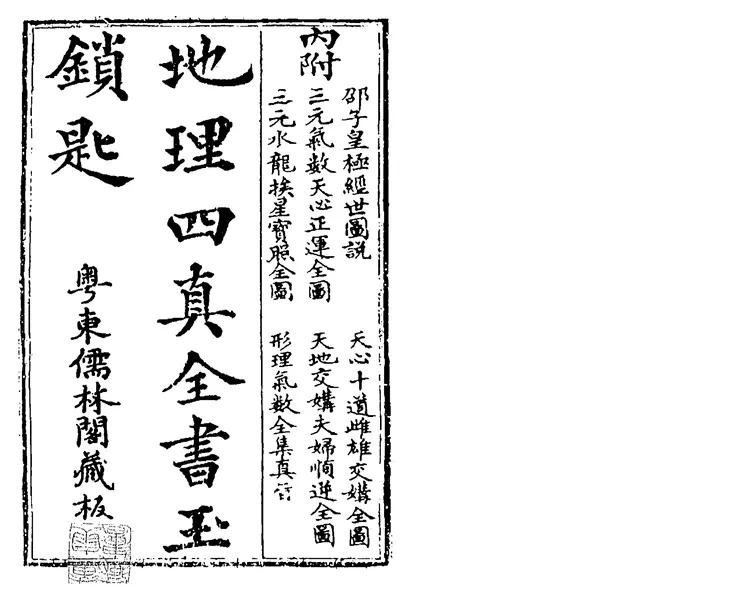 內附
邵子皇極經世圖説
天心十道雌雄交媾全圖
三元氣数天心正運全圖
天地交媾夫婦順逆全圖
三元水龍挨星寳照全圖
形理氣数全集真
地理四真全書玉
鎖匙
粤東儒林閣藏板